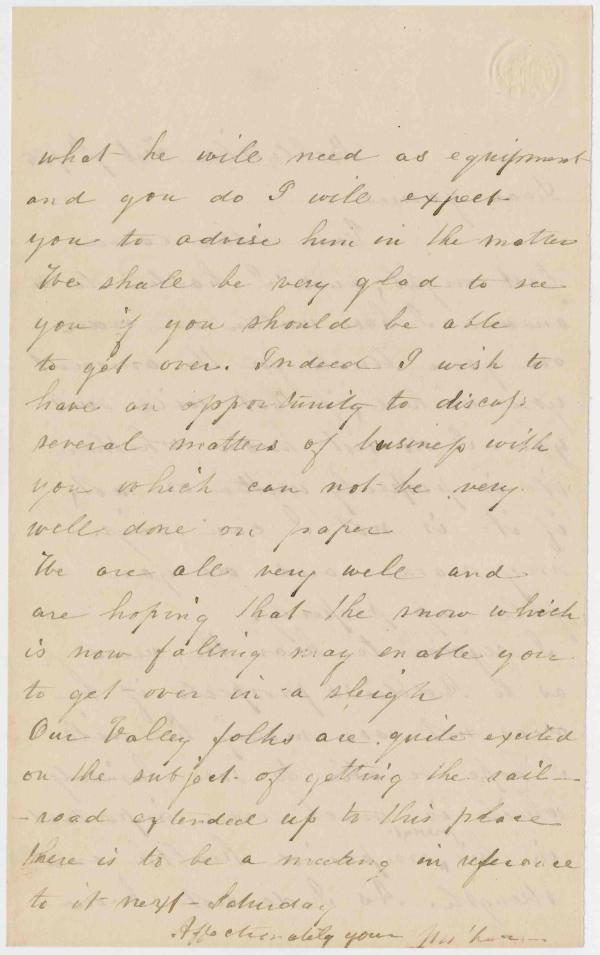 what he will need as equipment
and you do I will expect
you to advise him in the matter
We shall be very glad to see
you if you should be able
to get over. Indeed I wish to
have an opportunity to discuss
several matters of business with
you which can not be very
well done on paper
We are all very well and
are hoping that the snow which
is now falling may enable you
to get over in a sleigh
Our Valley folks are quite excited
on the subject of getting the rail-
-road extended up to this place
there is to be a meeting in reference
to it next Saturday
Affectionately your